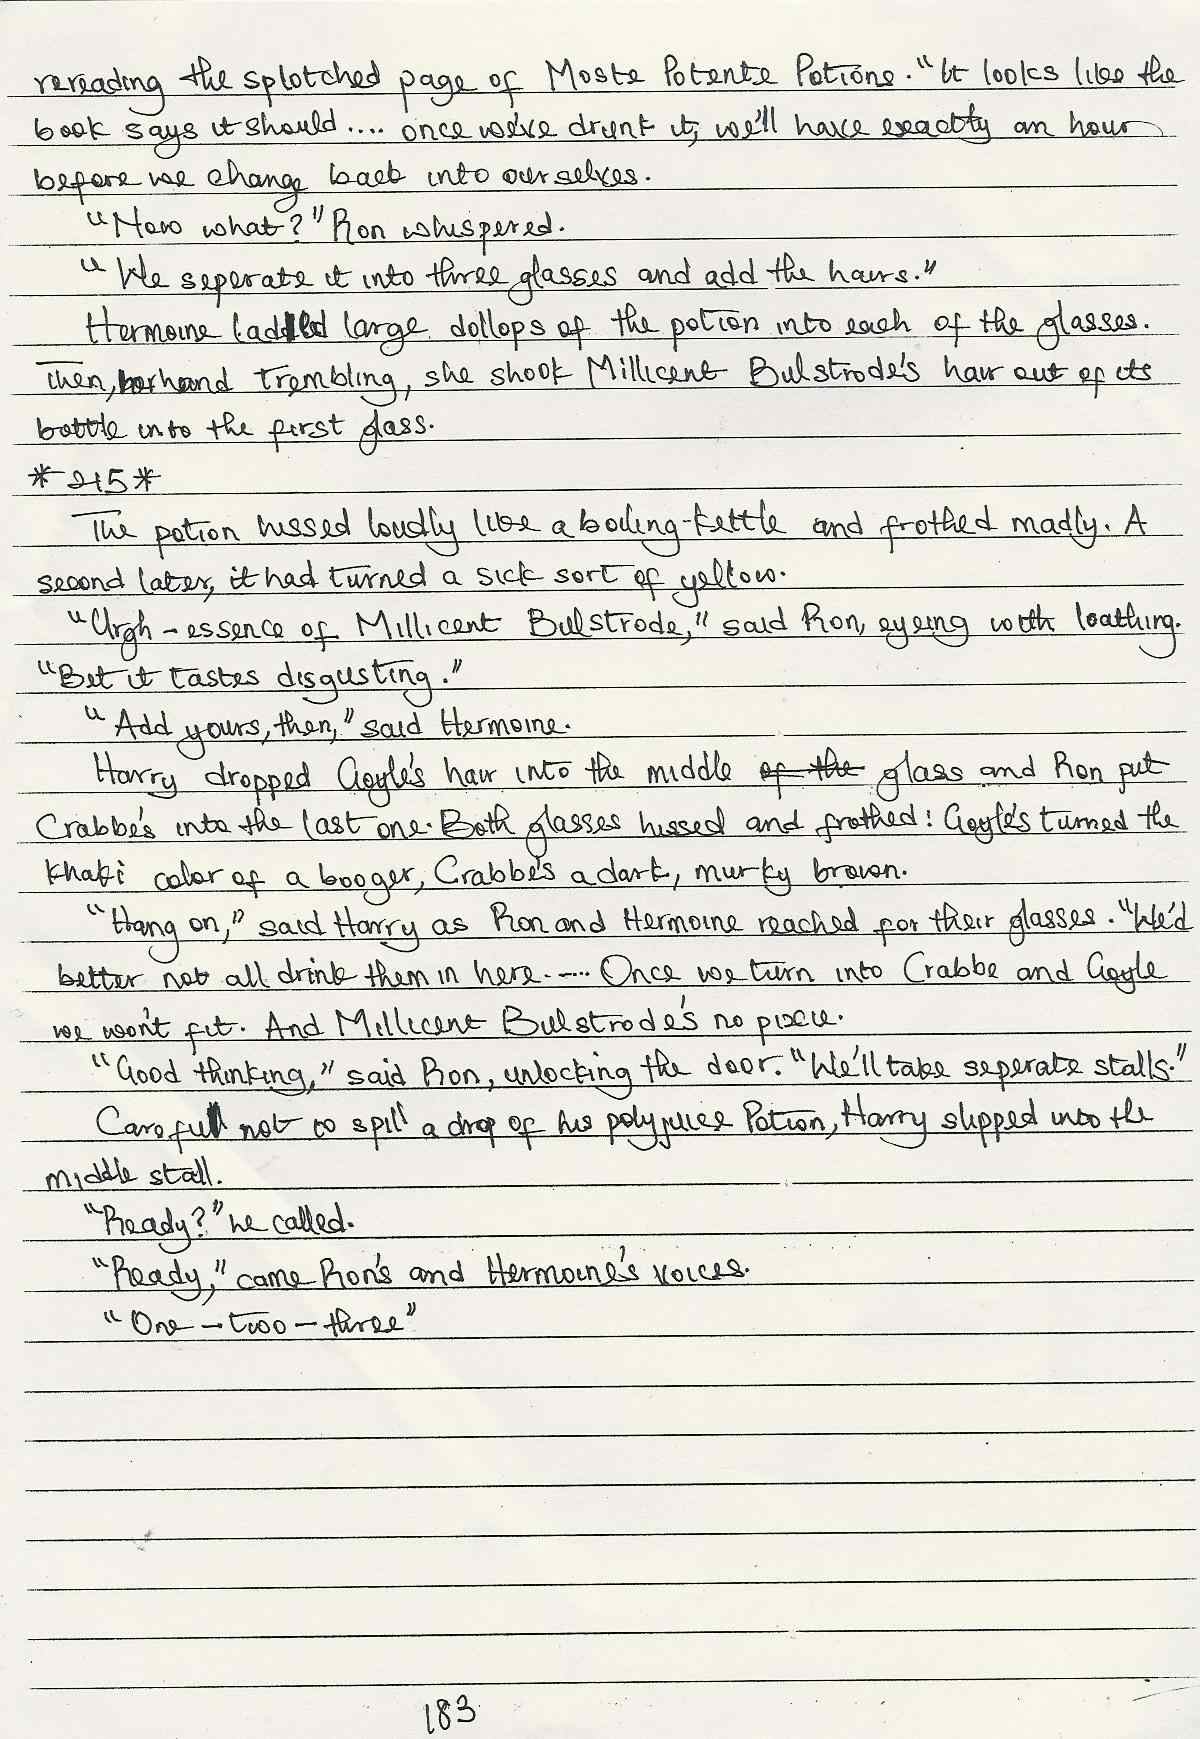 rereading the splotched page of Moste Potente Potions. "It looks like the
book says it should.... once we've drunk it, we'll have exactly an hour
before we change back into ourselves.
"Now what?" Ron whispered.
"We seperate it into three glasses and add the hairs."
Hermoine ladled large dollops of the potion into each of the glasses.
Then, her hand trembling, she shook Millicent Bulstrode's hair out of its
bottle into the first glass.
*215*
The potion hissed loudly like a boiling-kettle and frothed madly. A
second later, it had turned a sick sort of yellow.
"Urgh - essence of Millicent Bulstrode," said Ron, eyeing with loathing.
"Bet it tastes disgusting."
"Add yours, then," said Hermoine.
Harry dropped Goyle's hair into the middle of the glass and Ron put
Crabbe's into the last one. Both glasses hissed and frothed: Goyle's turned the
khaki color of a booger, Crabbe's a dark, murky brown.
"Hang on," said Harry as Ron and Hermoine reached for their glasses. "We'd
better not all drink them in here..... Once we turn into Crabbe and Goyle
we won't fit. And Millicent Bulstrode's no pixie.
"Good thinking," said Ron, unlocking the door. "We'll take seperate stalls."
Careful not to spill a drop of his polyjuice Potion, Harry slipped into the
middle stall.
"Ready?" he called.
"Ready," came Ron's and Hermoine's voices.
"One - two - three"
183